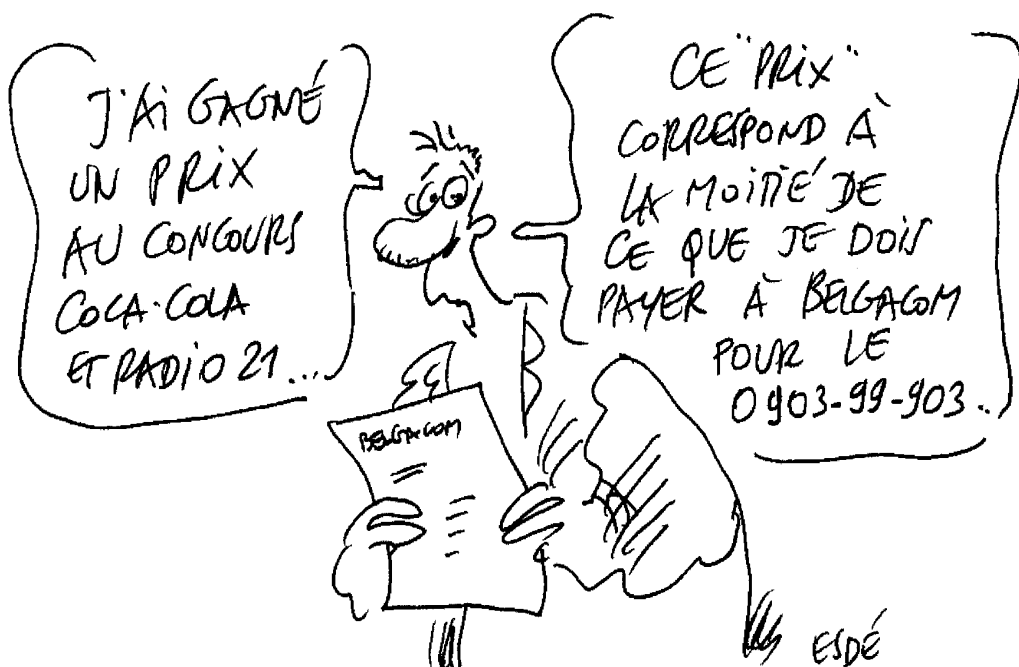 J'AI GAGNÉ
UN PRIX
AU CONCOURS
COCA-COLA
ET RADIO 21...
CE "PRIX"
CORRESPOND À
LA MOITIÉ DE
CE QUE JE DOIS
PAYER À BELGACOM
POUR LE
0903-99-903..
BELGACOM
ESDÉ